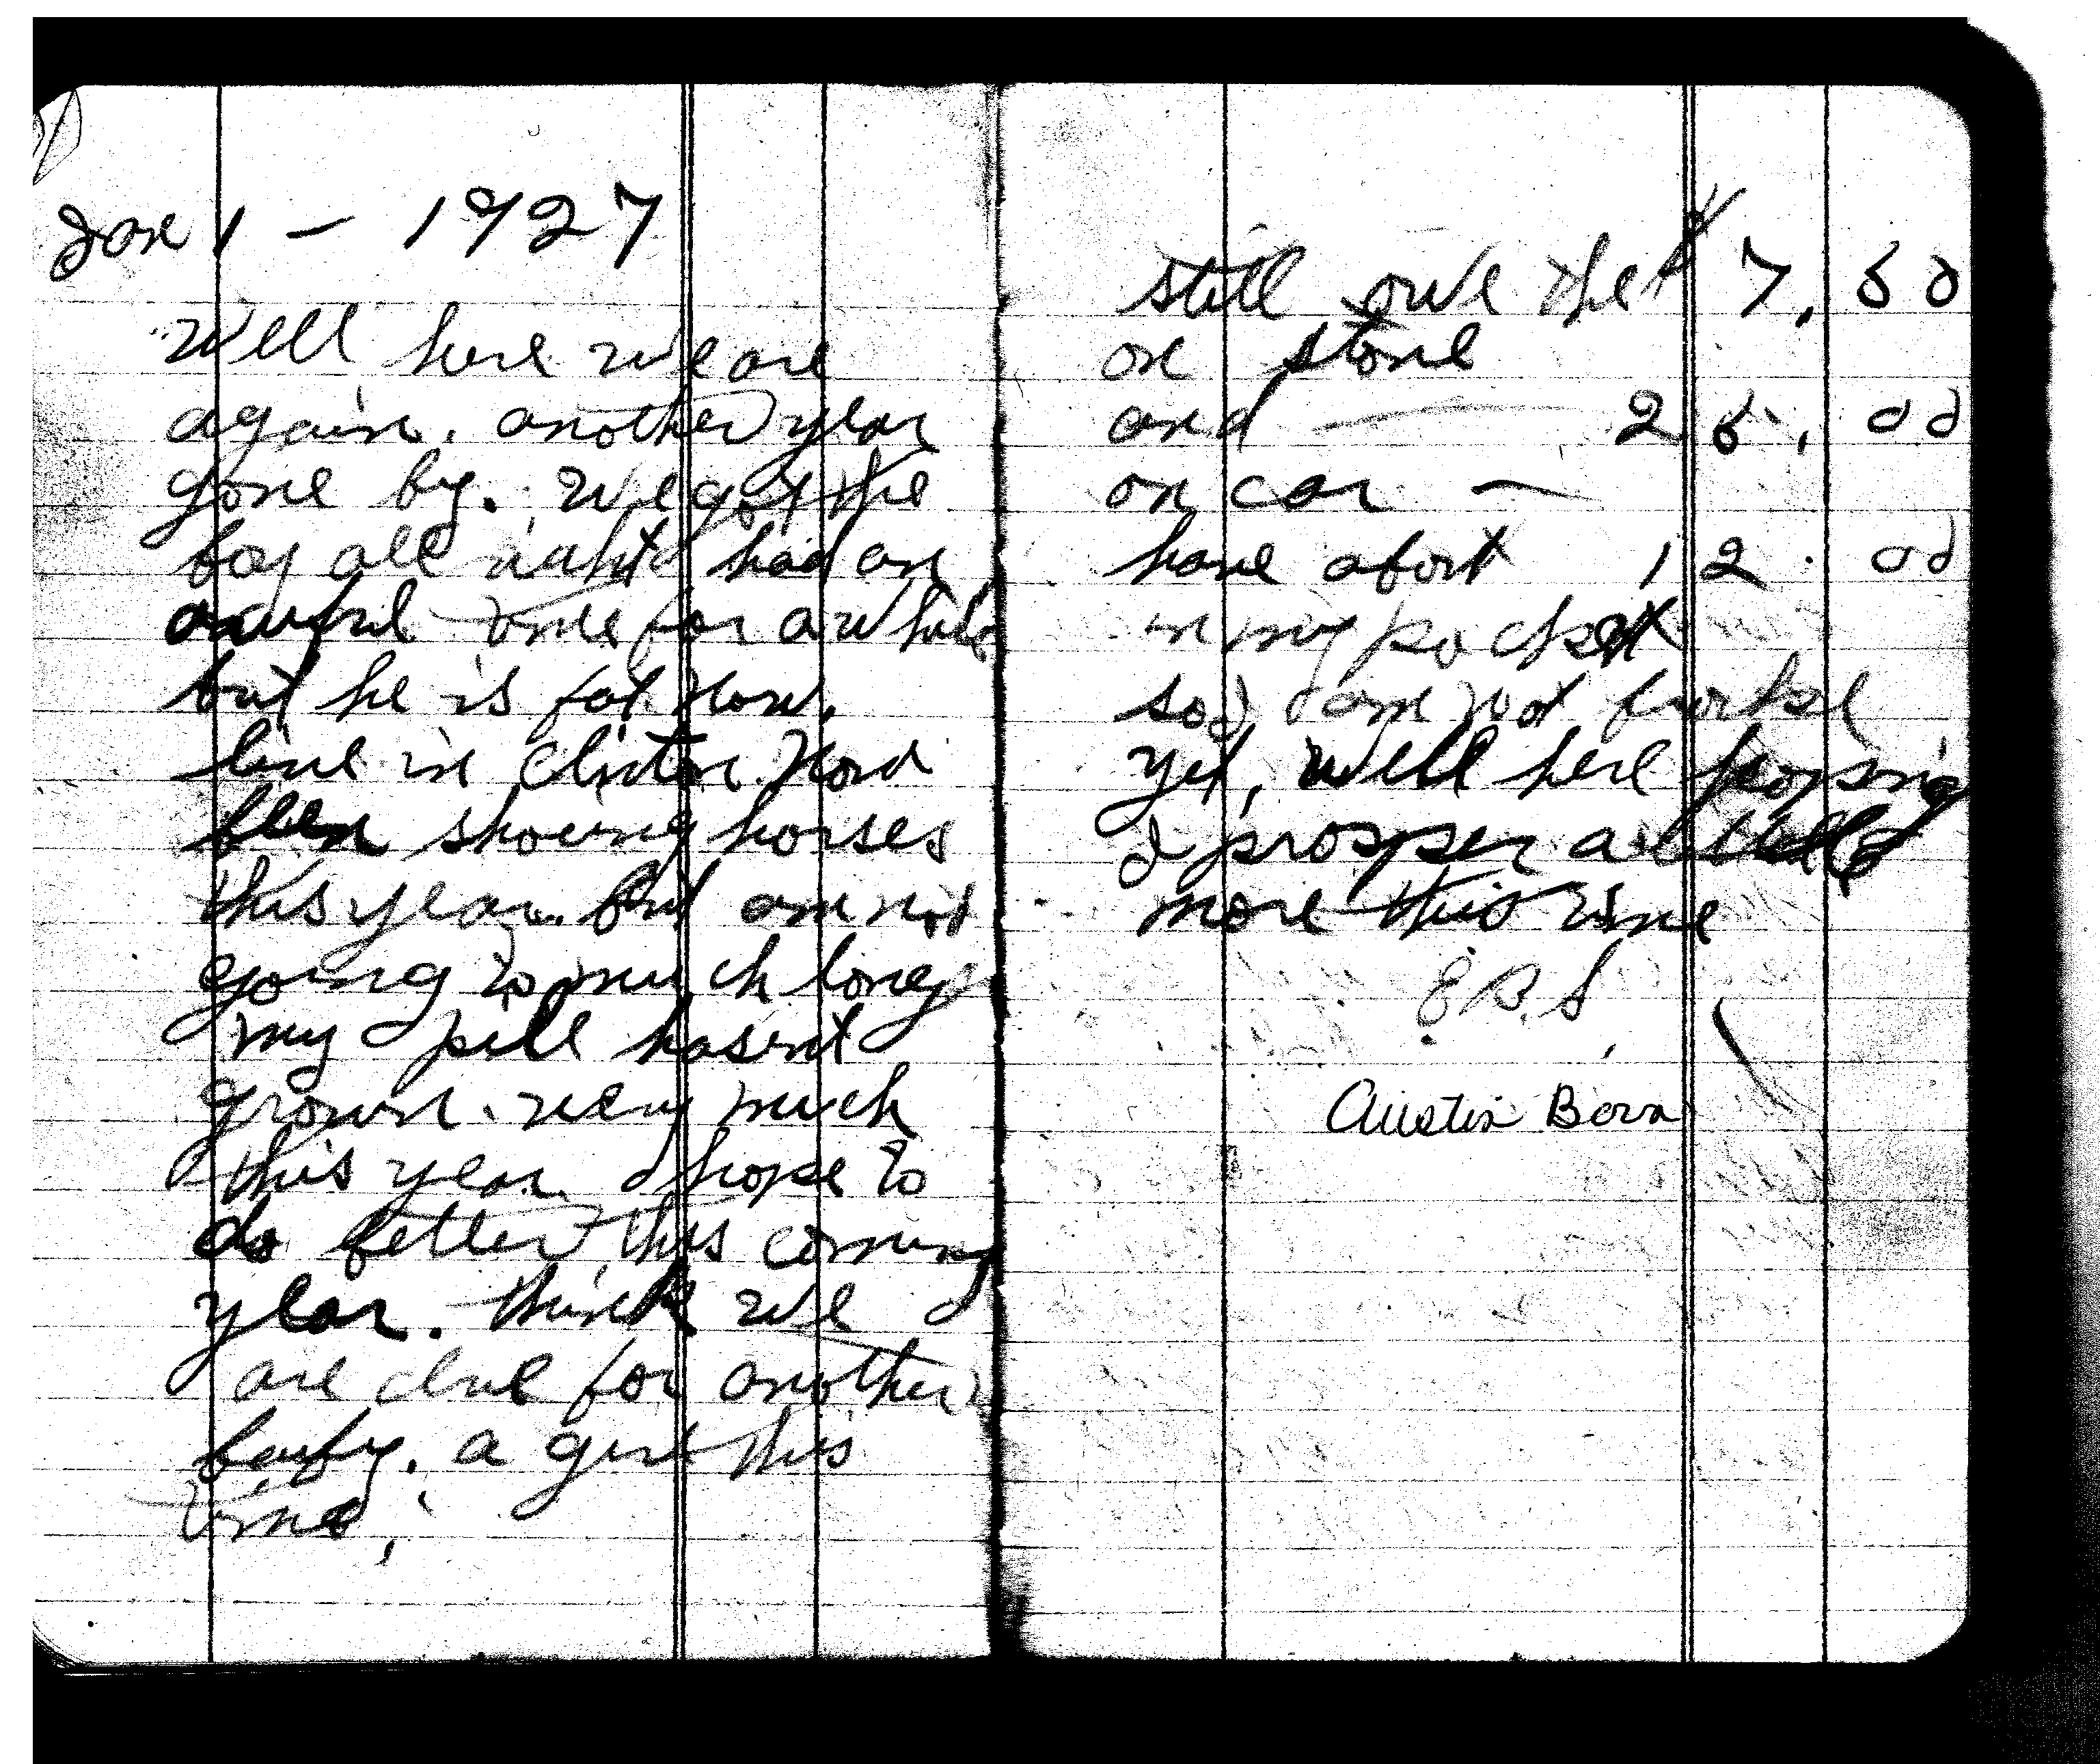 Jan 1 - 1927
Well here we are
again. another year
gone by. We got the
boy all right had an
awful time for awhile
but he is fat now.
live in Clinton. Now
been shoeing horses
this year. But am not
going to much longer
my pile hasent
grown very much
this year. I hope to
do better this coming
year. think we
are due for another
baby. a girl this
time.
still owe the $ 7.50
on stone
and — 25.00
on car —
have about 12.00
in my pocket
so I am not broke
yet, well here hoping
I prosper a little
more this time
E.B.S
Austin Born